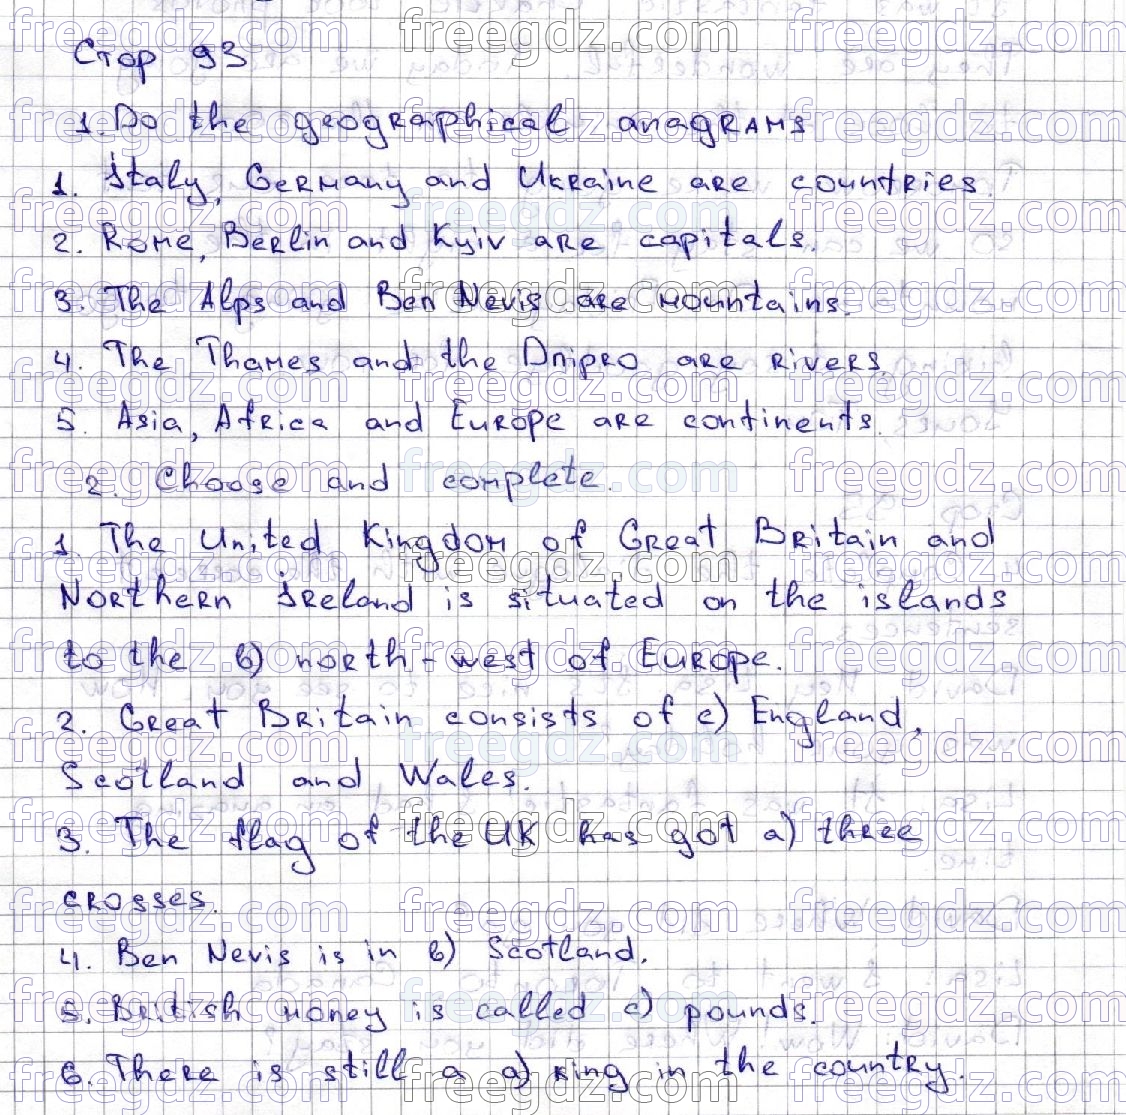 Стор 93
1. Do the geographical anagrams
1. Italy, Germany and Ukraine are countries.
2. Rome, Berlin and Kyiv are capitals.
3. The Alps and Ben Nevis are mountains.
4. The Thames and the Dnipro are rivers.
5. Asia, Africa and Europe are continents.
2. Choose and complete.
1. The United Kingdom of Great Britain and
Northern Ireland is situated on the islands
to the b) north-west of Europe.
2. Great Britain consists of c) England,
Scotland and Wales.
3. The flag of the UK has got a) three
crosses.
4. Ben Nevis is in b) Scotland.
5. British money is called c) pounds.
6. There is still a a) king in the country.
freegdz.com